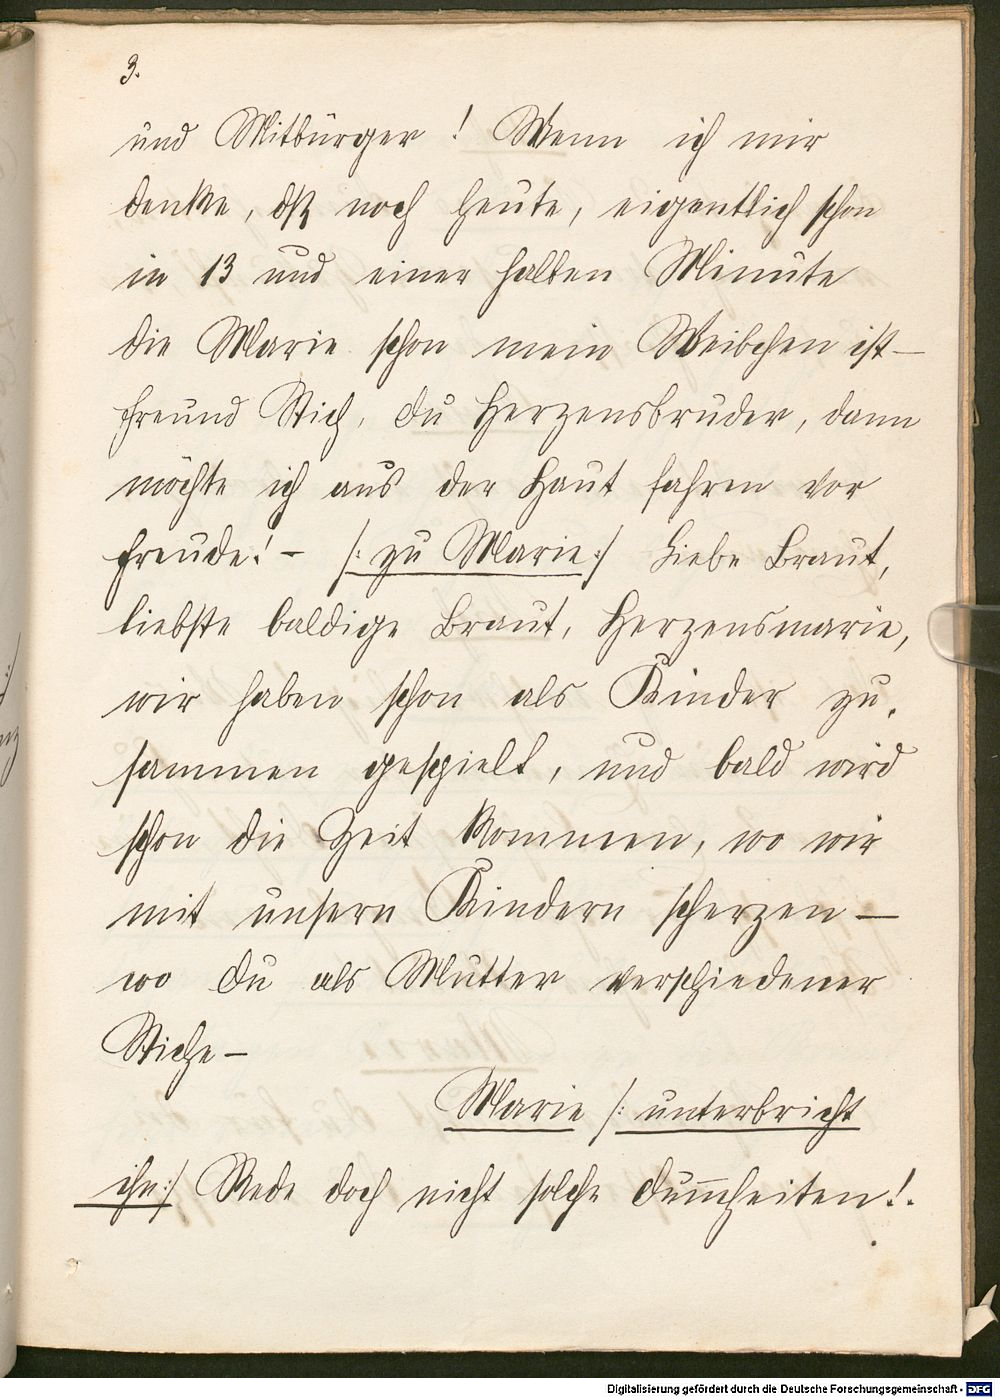 3.
und Mitbürger! Wenn ich mir
denke, dß noch heute, eigentlich schon
in 13 und einer halben Minute
die Marie schon mein Weibchen ist —
Freund Stich, du Herzensbruder, dann
möchte ich aus der Haut fahren vor
Freude! — /: zu Marie :/ Liebe Braut,
liebste baldige Braut, Herzensmarie,
wir haben schon als Kinder zu-
sammen gespielt, und bald wird
schon die Zeit kommen, wo wir
mit unsern Kindern scherzen —
wo du als Mutter verschiedener
Stiche —
Marie /: unterbricht
ihn :/ Rede doch nicht solche Dum̅heiten!.
Digitalisierung gefördert durch die Deutsche Forschungsgemeinschaft - DFG